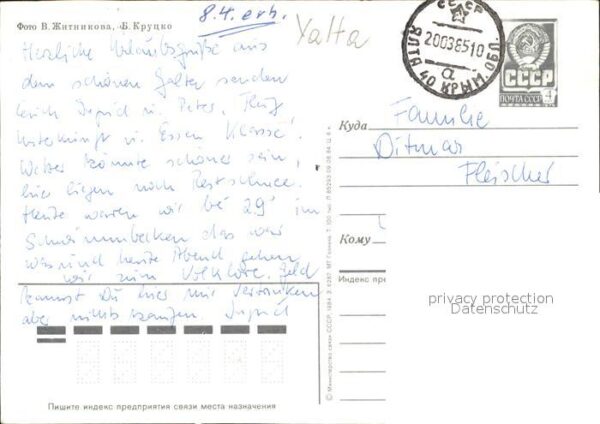 Фото В. Житникова, Б. Круцко
8.4. erh.
Yalta
Herzliche Urlaubsgrüße aus
dem schönen Jalta senden
Euch Ingrid u. Peter. Flug
Unterkunft u. Essen Klasse.
Wetter könnte schöner sein,
hier liegen noch Restschnee.
Heute waren wir bei 29° im
Schwimmbecken das war
was und heute Abend gehen
wir zum Volklore. Geld
kannst Du hier nur vertrinken
aber nichts kaufen. Ingrid
Пишите индекс предприятия связи места назначения
© Министерство связи СССР, 1984. З. 6297. МТ Гознака. Т. 100 тыс.
СССР
ЯЛТА
20038510
а
40 КРЫМ. ОБЛ
СССР
ПОЧТА СССР 4
Куда
Familie
Ditmar
Fleischer
Кому
Индекс пре
privacy protection
Datenschutz